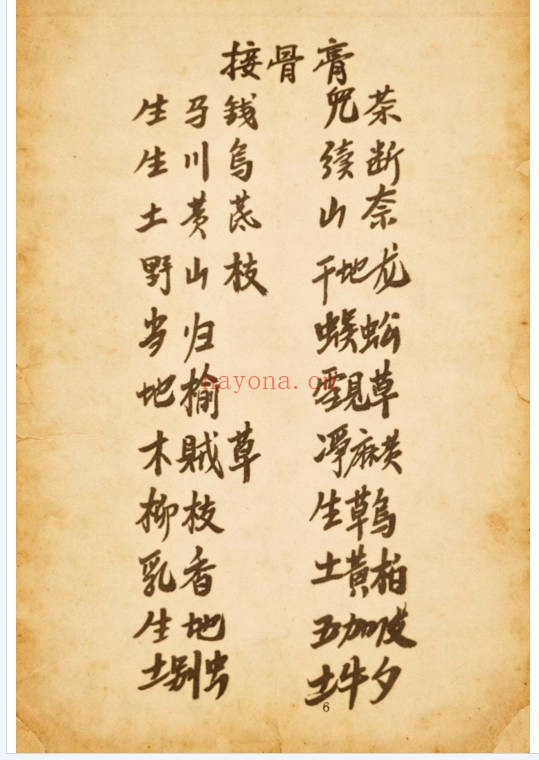 接骨膏
生马钱 児茶
生川乌 續断
土黄芪 山奈
野山枝 干地龙
当归 蜈蚣
地榆 見草
木賊草 净麻黄
柳枝 生草乌
乳香 土黄柏
生地 五加皮
土别虫 土牛夕
nayona.cn
6